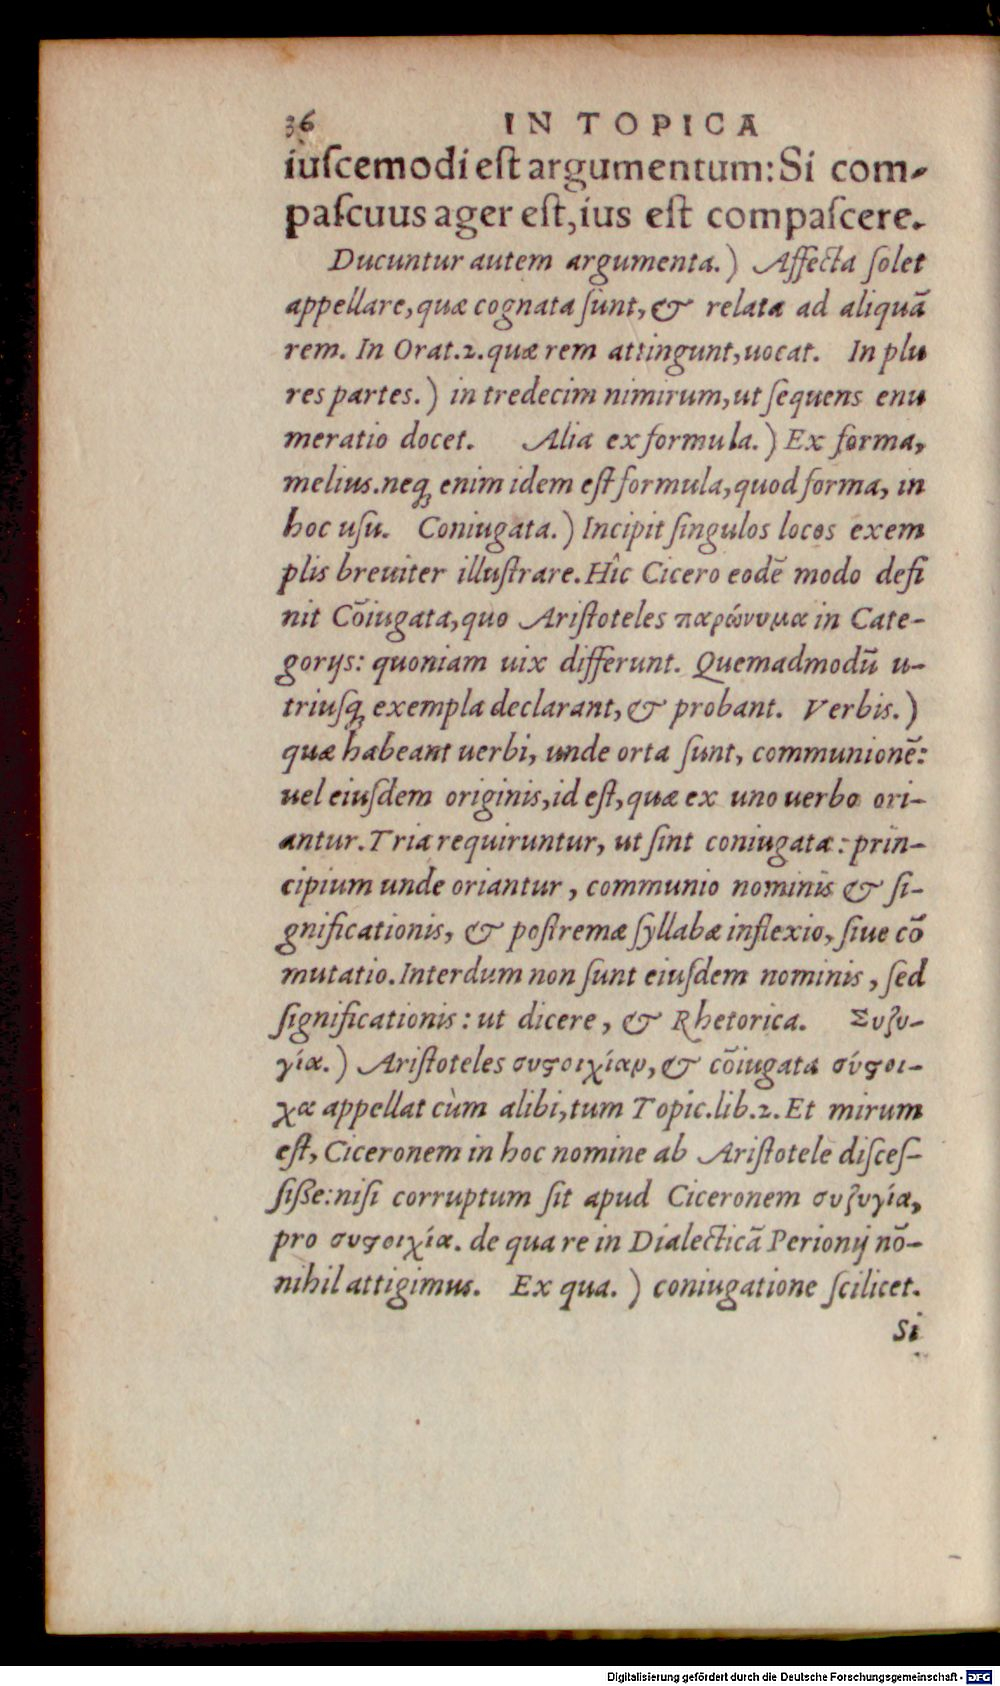 36 IN TOPICA
iuſcemodi eſt argumentum: Si com-
paſcuus ager eſt, ius eſt compaſcere.
Ducuntur autem argumenta.) Affecta ſolet
appellare, quæ cognata ſunt, & relata ad aliquā
rem. In Orat. 2. quæ rem attingunt, uocat. In plu
res partes.) in tredecim nimirum, ut ſequens enu
meratio docet. Alia ex formula.) Ex forma,
melius. neq; enim idem eſt formula, quod forma, in
hoc uſu. Coniugata.) Incipit ſingulos locos exem
plis breuiter illuſtrare. Hîc Cicero eodē modo defi
nit Cōiugata, quo Ariſtoteles παρώνυμα in Cate-
gorijs: quoniam uix differunt. Quemadmodū u-
triuſq; exempla declarant, & probant. Verbis.)
quæ habeant uerbi, unde orta ſunt, communionē:
uel eiuſdem originis, id eſt, quæ ex uno uerbo ori-
antur. Tria requiruntur, ut ſint coniugata: prin-
cipium unde oriantur, communio nominis & ſi-
gnificationis, & poſtremæ ſyllabæ inflexio, ſiue cō
mutatio. Interdum non ſunt eiuſdem nominis, ſed
ſignificationis: ut dicere, & Rhetorica. Συζυ-
γία.) Ariſtoteles συϛοιχίαν, & cōiugata σύϛοι-
χα appellat cùm alibi, tum Topic. lib. 2. Et mirum
eſt, Ciceronem in hoc nomine ab Ariſtotele diſceſ-
ſiſſe: niſi corruptum ſit apud Ciceronem συζυγία,
pro συϛοιχία. de qua re in Dialecticā Perionij nō-
nihil attigimus. Ex qua.) coniugatione ſcilicet.
Si
Digitalisierung gefördert durch die Deutsche Forschungsgemeinschaft - DFG